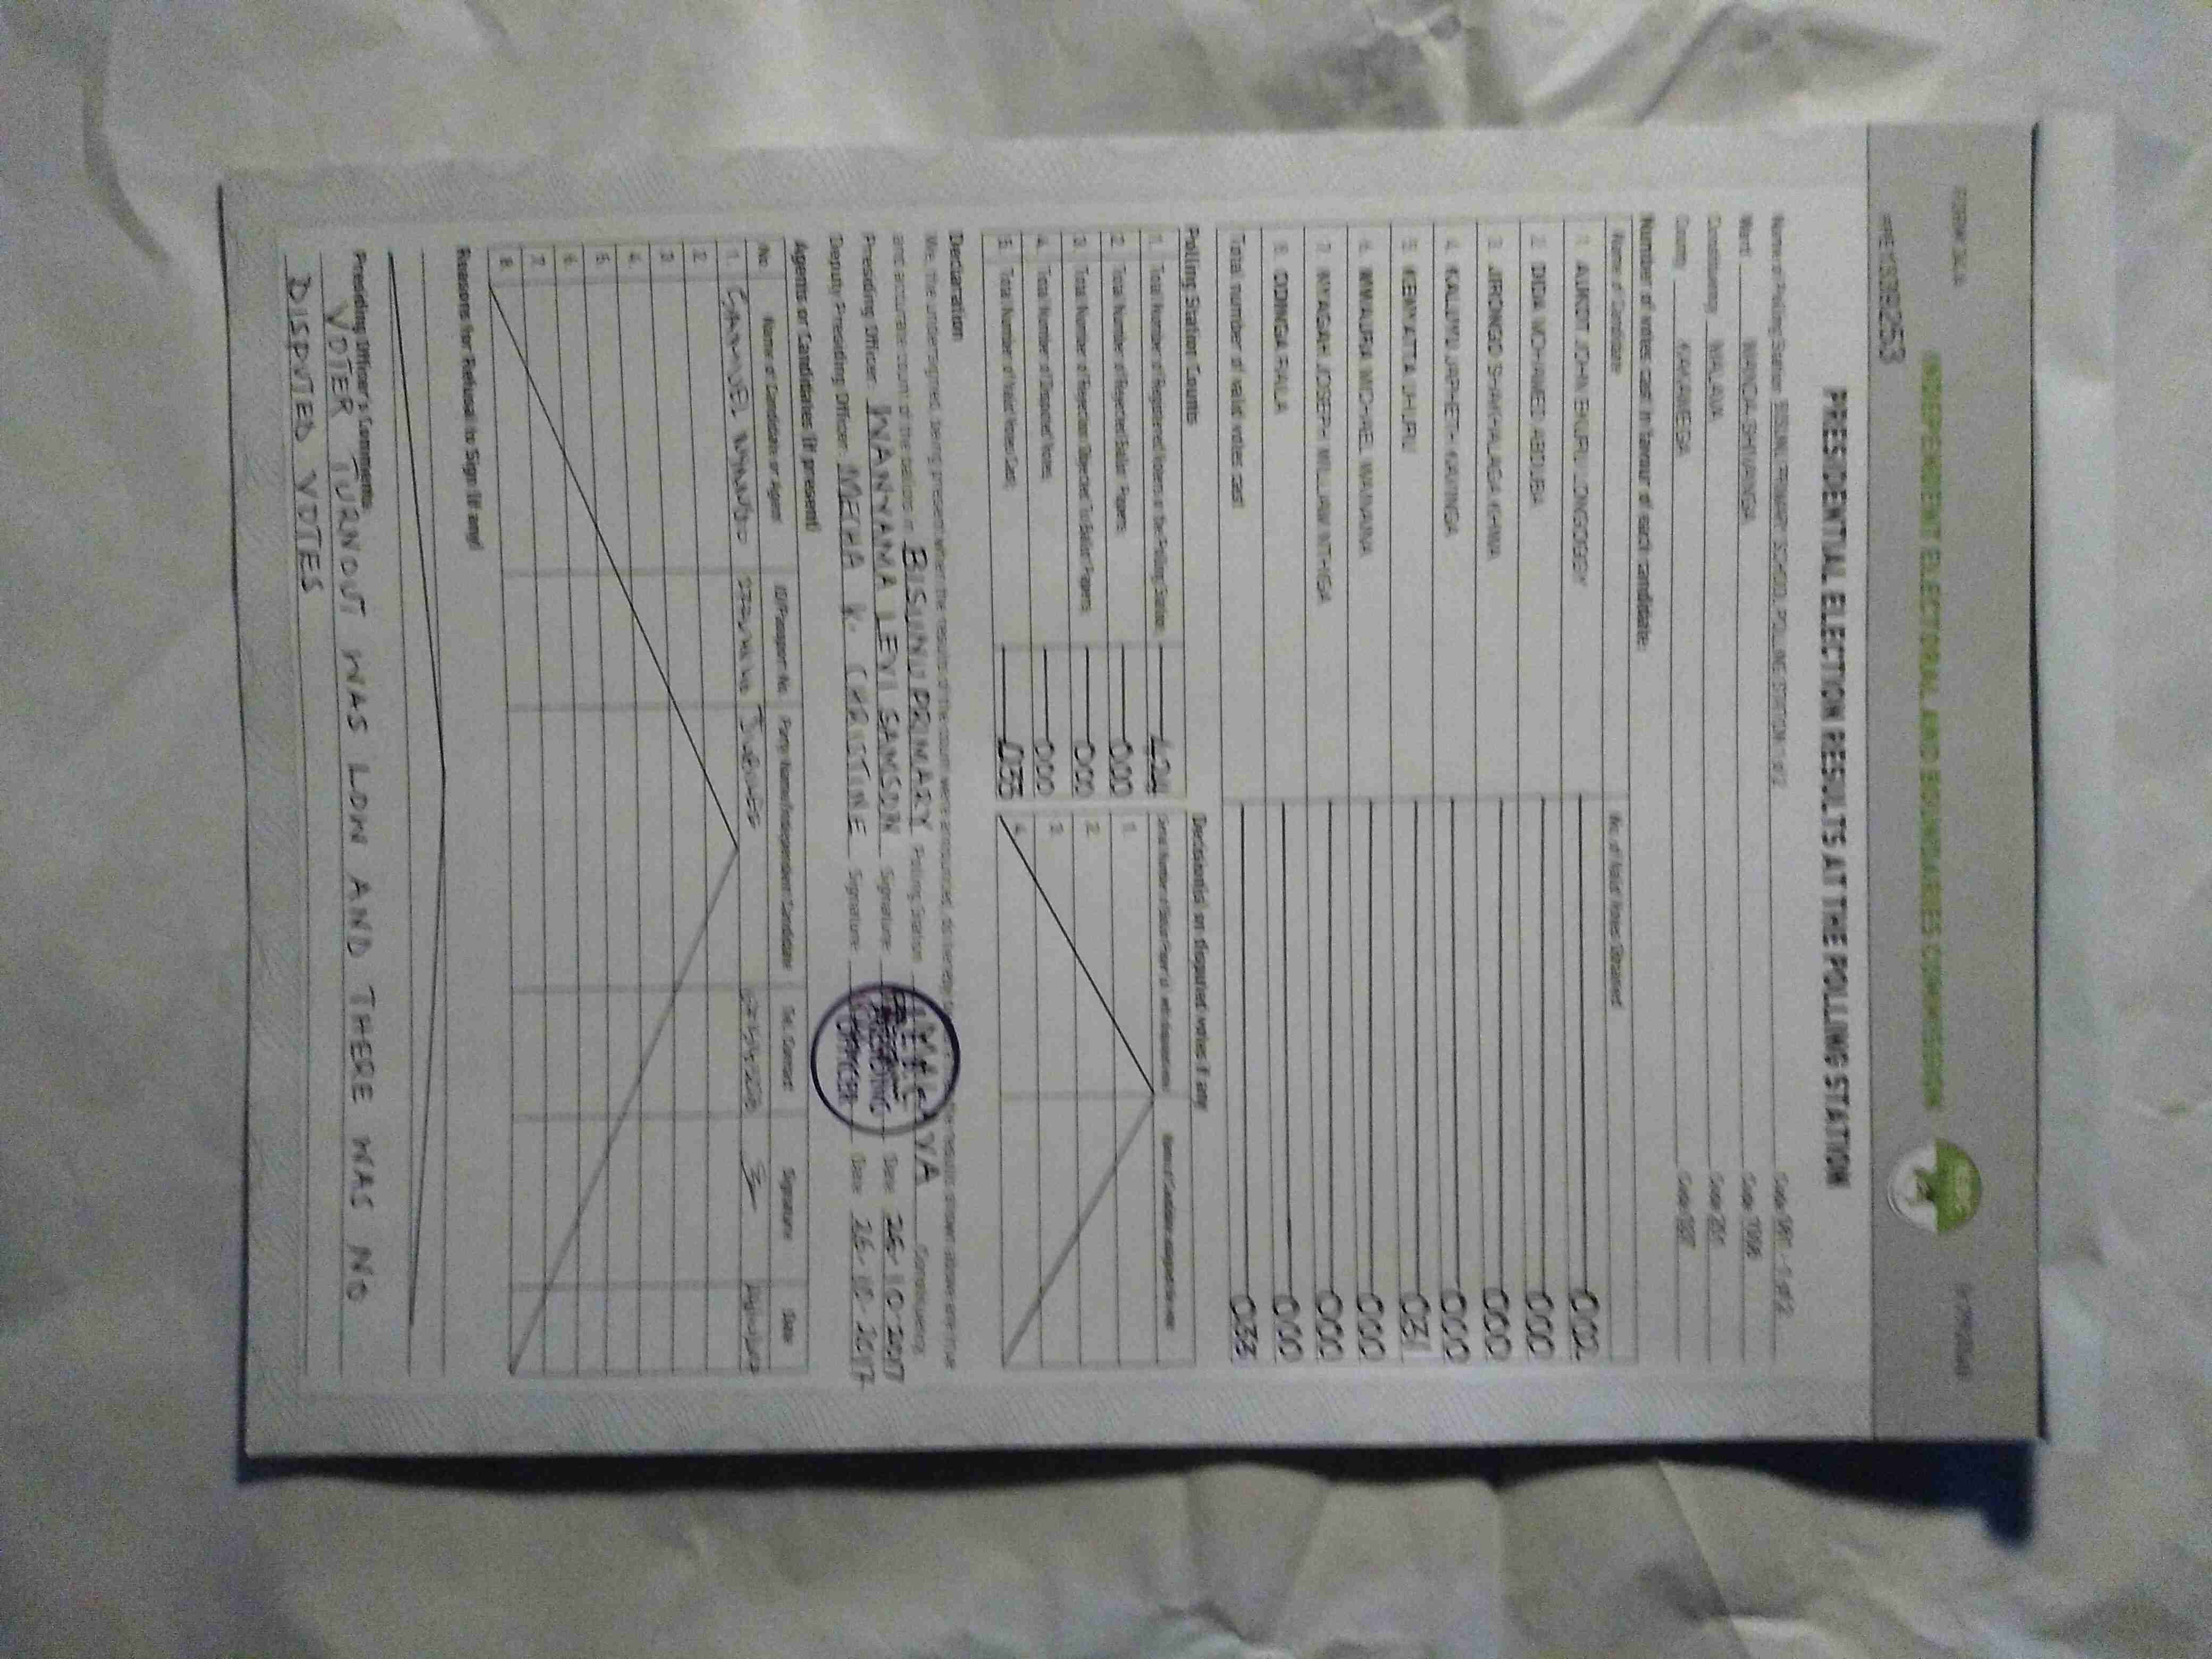 FORM 34A
INDEPENDENT ELECTORAL AND BOUNDARIES COMMISSION
PRESIDENTIAL ELECTION RESULTS AT THE POLLING STATION
Name of Polling Station PRIMARY SCHOOL POLLING STATION 1 of 2 Code 1 of 2
Ward MANDA-SHIVANGA Code
Constituency MALAVA Code 201
County KAKAMEGA Code 037
Number of votes cast in favour of each candidate:
Name of Candidate No. of Valid Votes Obtained
1. AUKOT JOHN EKURU LONGOGGY 002
2. DIDA MOHAMED ABDUBA 000
3. JIRONGO SHAKHALAGA KHWA 000
4. KALUYU JAPHETH KAVINGA 000
5. KENYATTA UHURU 031
6. MWAURA MICHAEL WAINAINA 000
7. NYAGAH JOSEPH WILLIAM NTHIGA 000
8. ODINGA RAILA 000
Total number of valid votes cast 033
Polling Station Counts Decision(s) on disputed votes if any
1. Total Number of Registered Voters in the Polling Station
2. Total Number of Rejected Ballot Papers 000
3. Total Number of Rejection Objected To Ballot Papers 000
4. Total Number of Disputed Votes 000
5. Total Number of Valid Votes Cast
1.
2.
3.
4.
Declaration
We, the undersigned, being present when the results of the count were announced, do hereby
and accurate count of the ballots in BISUNU PRIMARY Polling Station Constituency
Presiding Officer: WANYAMA LEVI SAMSON Signature: Date 26-10-2017
Deputy Presiding Officer: MECHA K. CHRISTINE Signature: Date 26-10-2017
PRESIDING
OFFICER
Agents or Candidates (if present)
No. Name of Candidate or Agent ID/Passport No. Party Name/Independent Candidate Tel. Contact Signature Date
1. SAMUEL JUBILEE
2.
3.
4.
5.
6.
7.
8.
Reasons for Refusal to Sign (if any)
Presiding Officer's Comments
VOTER TURNOUT WAS LOW AND THERE WAS NO
DISPUTED VOTES